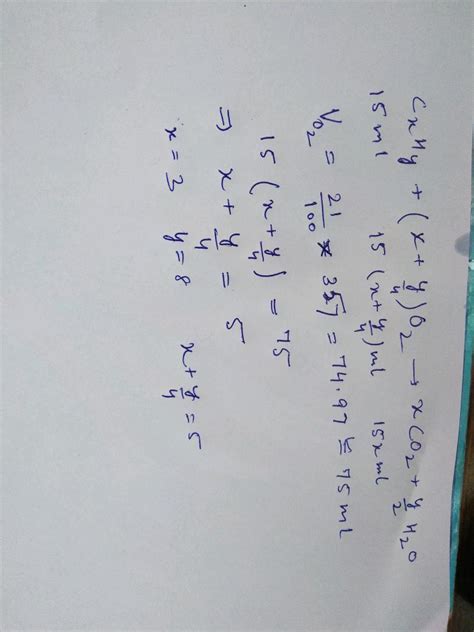 CxHy + (x + y/4)O2 → xCO2 + y/2 H2O
15 ml 15 (x + y/4) ml 15x ml
VO2 = 21/100 × 357 = 74.97 ≃ 75 ml
15 (x + y/4) = 75
⇒ x + y/4 = 5
x = 3 y = 8 x + y/4 = 5